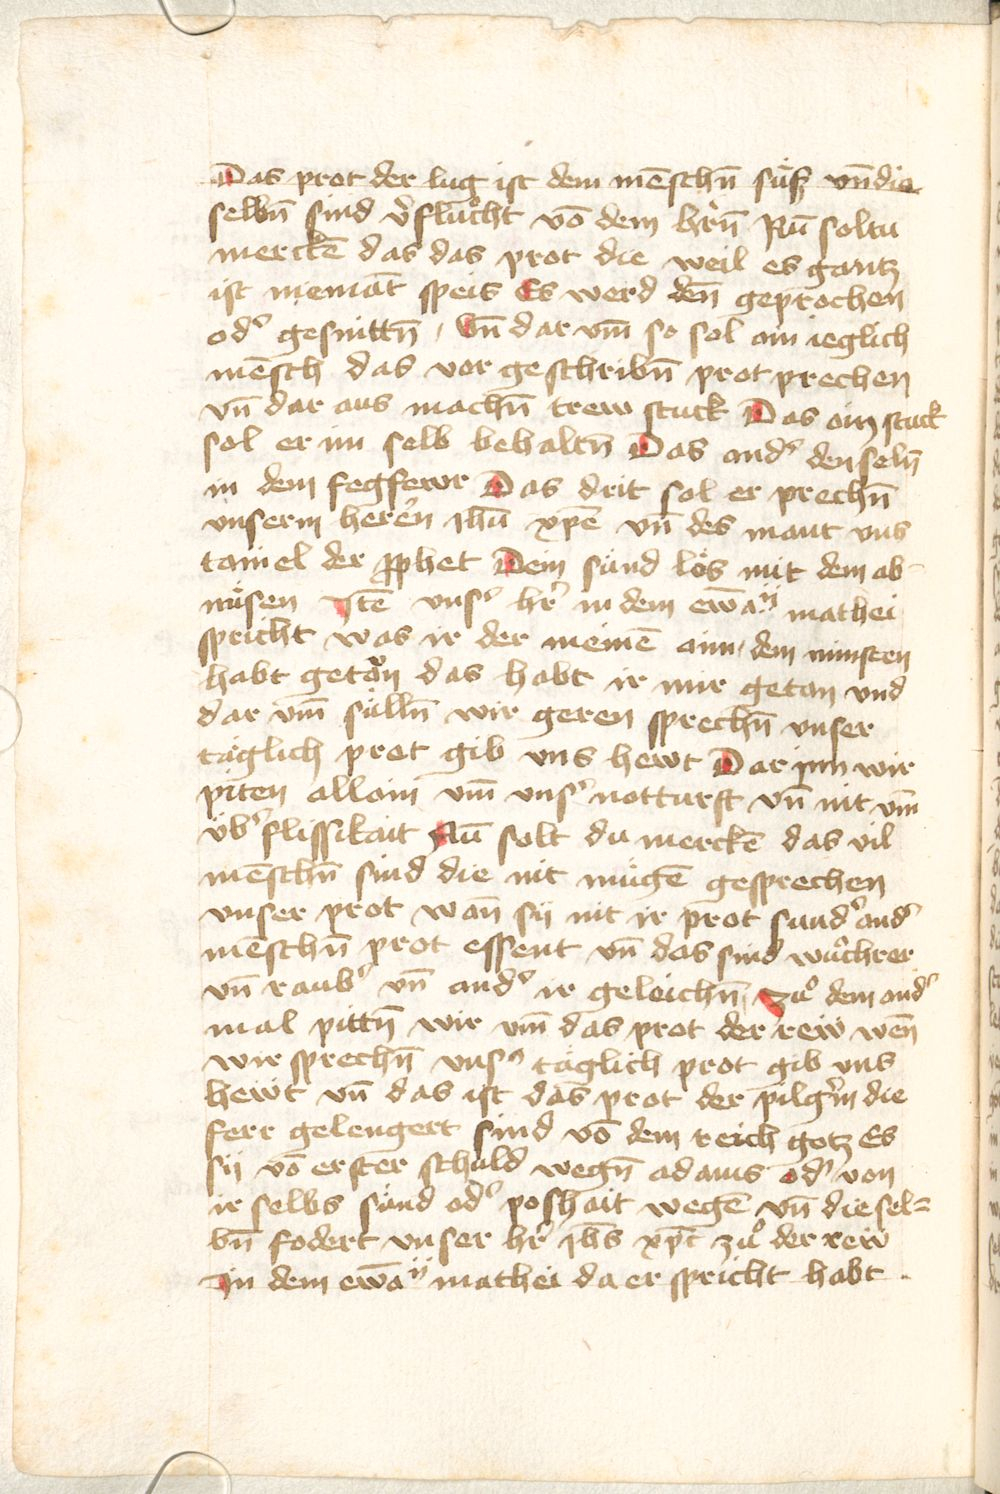 Das prot der lug ist dem mēschn̄ süß vn̄ die
selbn̄ sind v̾fluͦcht vō dem hr̄n Nū soltu
merckē das das prot die weil es gantz
ist niemāt speis Es werd den̄ geprochen
od̾ gesnittn̄ / Vn̄ dar vm̄ so sol ain ieglich
mēsch das vor geschribn̄ prot prechen
vn̄ dar aus machn̄ trew stuck Das ain stuck
sol er im selb behaltn̄ Das and̾ den seln̄
in dem fegfewr Das drit sol er prechn̄
vnserm heren ihū xp̄e vn̄ des mant vns
taniel der p̄phet Dein sünd lös mit dem ab-
müsen Itē vns̾ hr̾ in dem ewāij mathei
spricht was ir der meinē aim dem minsten
habt getan das habt ir mir getan vnd
dar vm̄ sülln̄ wir geren sprechn̄ vnser
täglich prot gib vns hewt Dar jnn wir
piten allain vm̄ vns̾ notturft vn̄ nit vm̄
üb̾flissikait Nū solt du merckē das vil
mēschn̄ sind die nit mügē gesprechen
vnser prot wan̄ sÿ nit ir prot sund̾ and̾
mēschn̄ prot essent vn̄ das sind wuͦchrer
vn̄ raub̾ vn̄ and̾ ir geleichn̄ / zuͦ dem and̾
mal pittn̄ wir vm̄ das prot der rew wen̄
wir sprechn̄ vns̾ täglich prot gib vns
hewt vn̄ das ist das prot der pilgr̄m die
ferr gelengert sind vō dem reich gotz Es
sÿ vō erster schuld wegn̄ adams od̾ von
ir selbs sünd od̾ poshait wegē vn̄ die sel=
bn̄ fodert vnser hr̾ ihs̄ xp̄c zuͦ der rew
in dem ewāij mathei da er spricht habt